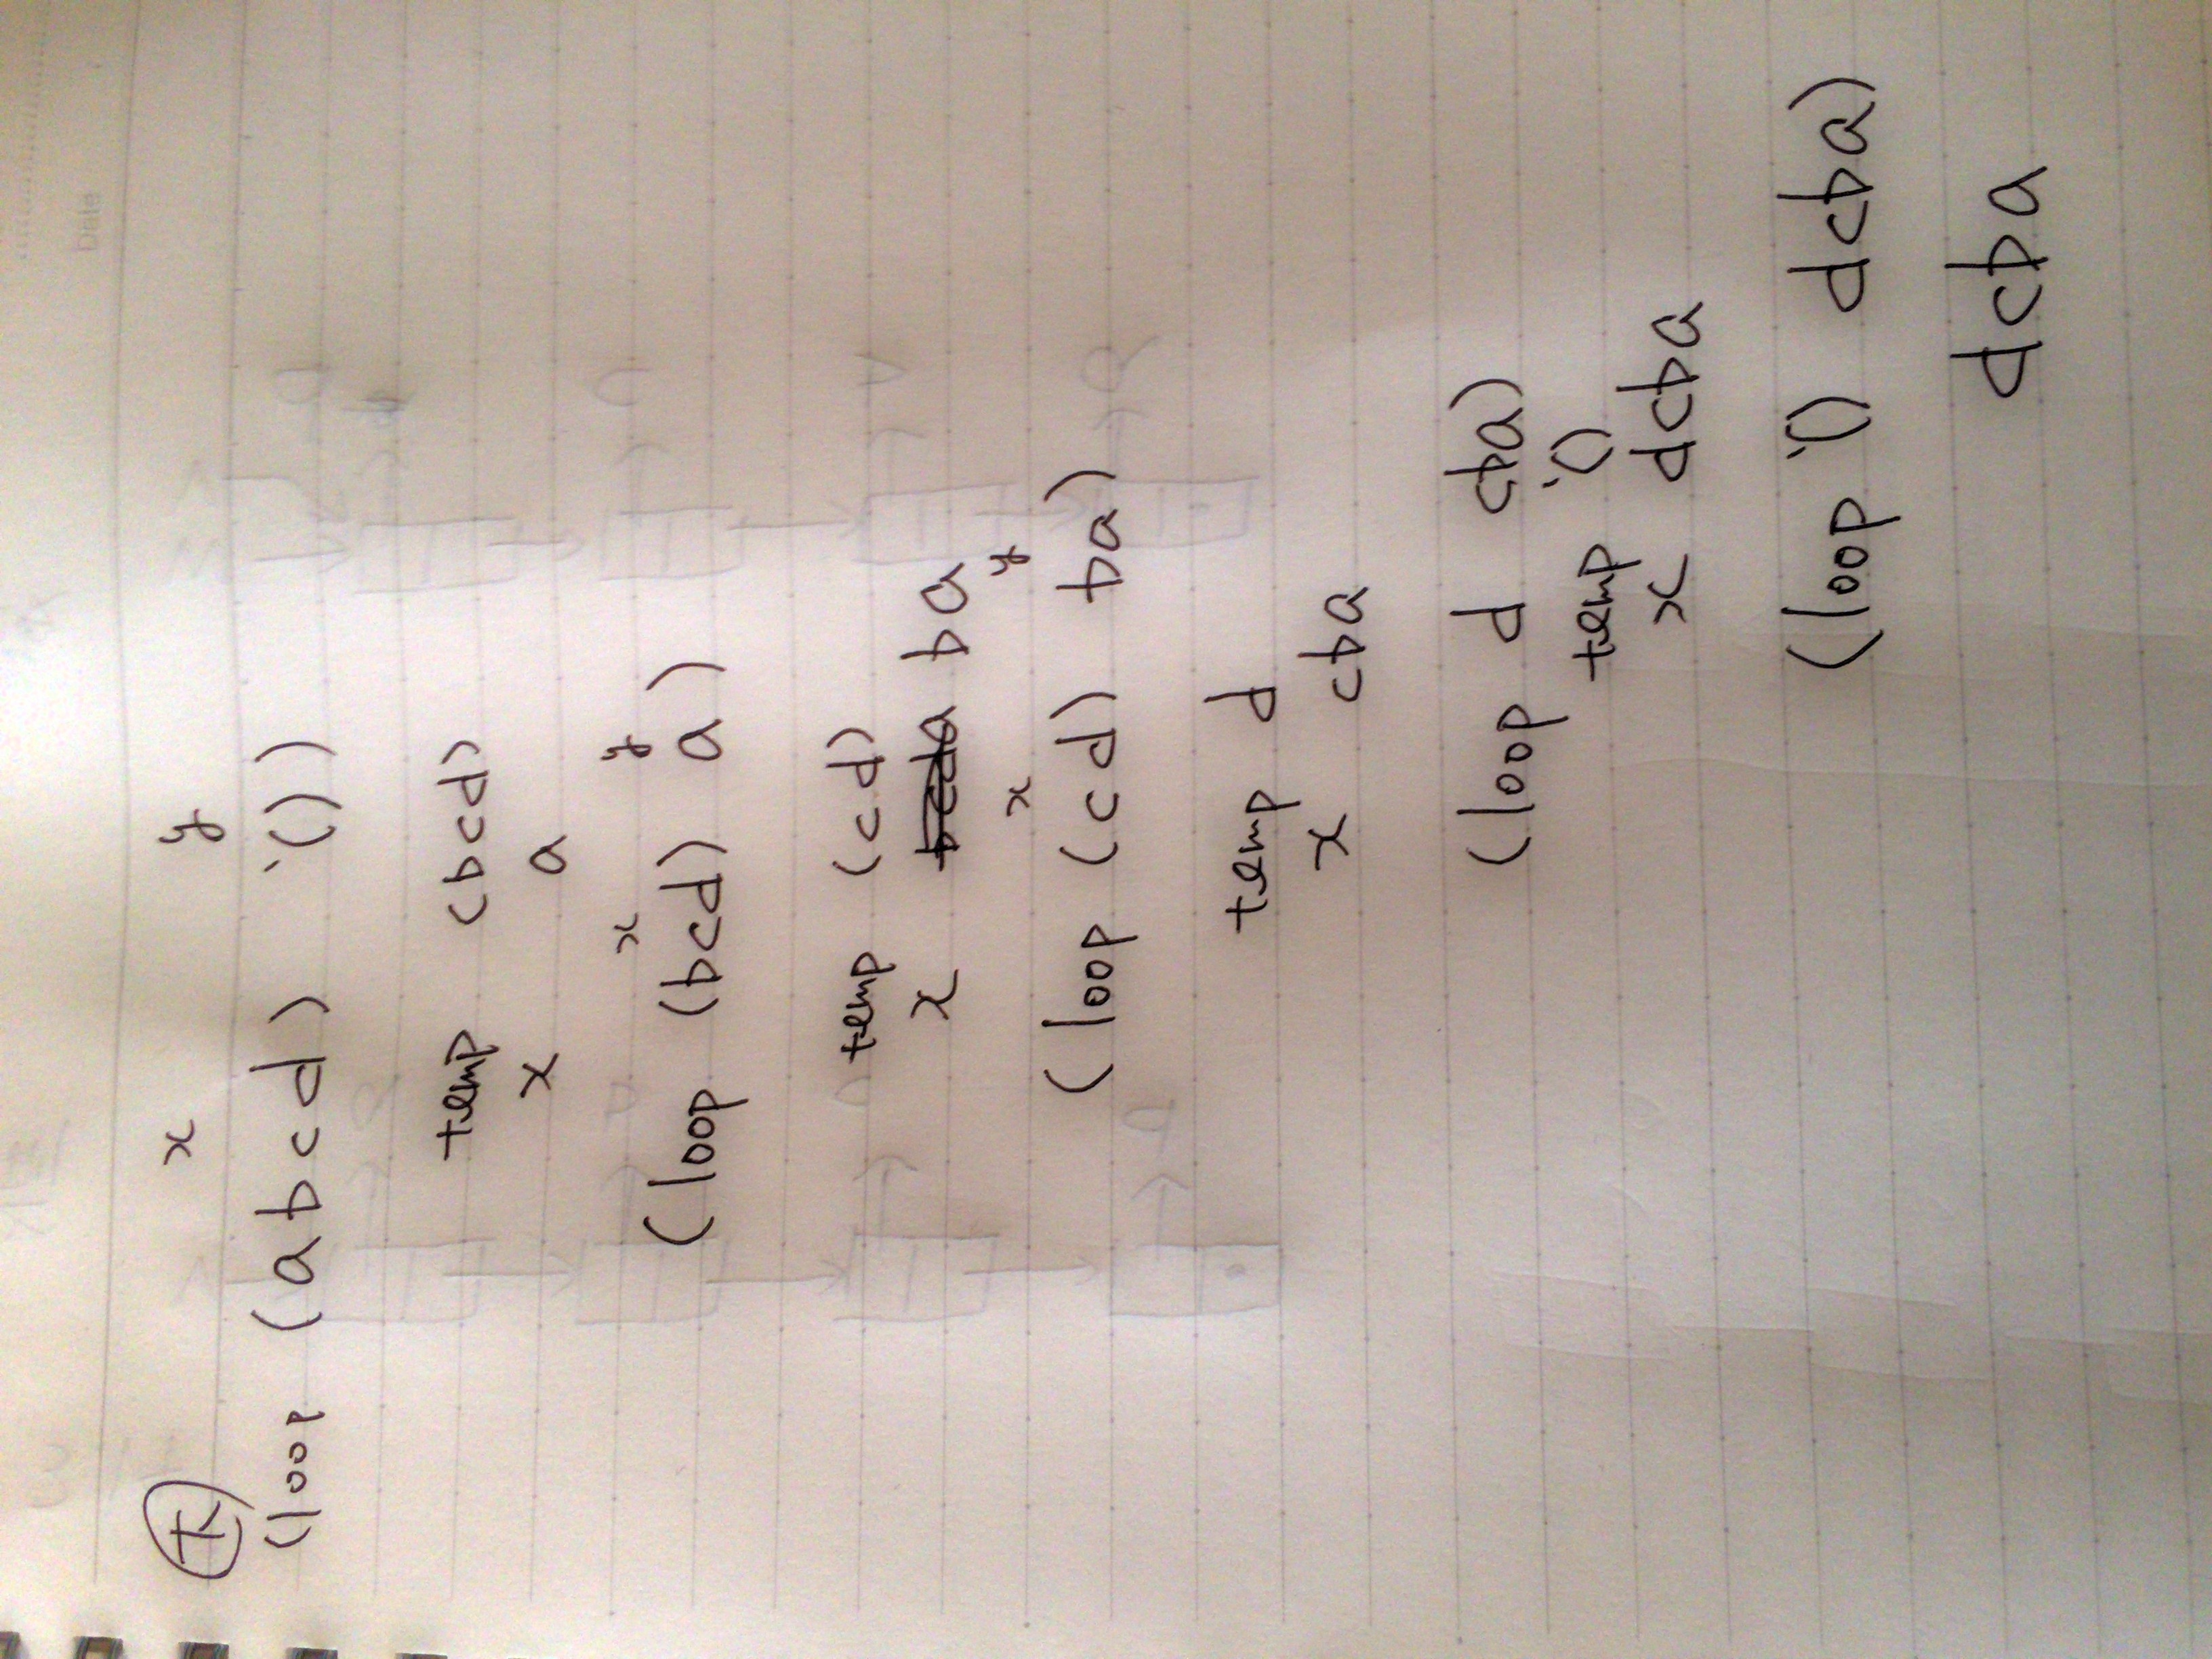 Date
x y
(loop (abcd) '())
temp (bcd)
x a
x y
(loop (bcd) a)
temp (cd)
x ba
x y
(loop (cd) ba)
temp d
x cba
(loop d cba)
temp '()
x dcba
(loop '() dcba)
dcba